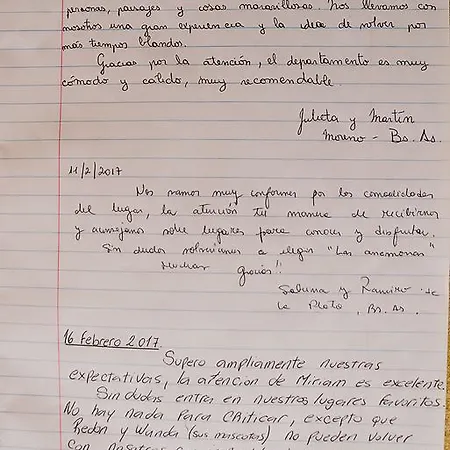 personas, paisajes y cosas maravillosas. Nos llevamos con
nosotros una gran experiencia y la idea de volver por
más tiempos blandos.
Gracias por la atención, el departamento es muy
cómodo y cálido, muy recomendable.
Julieta y Martín
Moreno - Bs. As.
11/2/2017
Nos vamos muy conformes por las comodidades
del lugar, la atención tu manera de recibirnos
y aconsejarnos sobre lugares para conocer y disfrutar.
Sin dudas volveríamos a elegir "Las anemonas"
Muchas gracias!!
Sabrina y Ramiro de
La Plata, Bs. As.
16 Febrero 2017.
Superó ampliamente nuestras
expectativas, la atención de Miriam es excelente.
Sin dudas entra en nuestros lugares favoritos.
No hay nada para criticar, excepto que
y Wanda (sus mascotas) no pueden volver
con nosotros